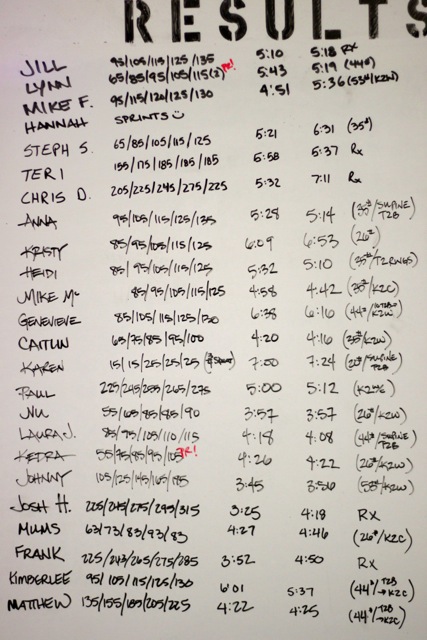 RESULTS
JILL 95/105/115/125/135 5:10 5:18 RX
LYNN 65/85/95/105/115(2) PR! 5:43 5:19 (44#)
MIKE F. 95/115/120/125/130 4:51 5:36 (53#/K2W)
HANNAH SPRINTS
STEPH S. 65/85/105/115/125 5:21 6:31 (35#)
TERI 155/175/185/185/185 5:58 5:37 Rx
CHRIS D. 205/225/245/275/225 5:32 7:11 Rx
ANNA 95/105/115/125/135 5:28 5:14 (35#/SUPINE T2B)
KRISTY 85/95/105/115/125 6:09 6:53 (26#)
HEIDI 85/95/105/115/125 5:32 5:10 (35#/T2RINGS)
MIKE Mc 85/95/105/115/125 4:58 4:42 (35#/K2C)
GENEVIEVE 85/105/115/125/130 6:38 6:16 (44#/K2W)
CAITLIN 65/75/85/95/100 4:20 4:16 (35#/K2W)
KAREN 15/15/25/25/25 7:00 7:24 (20#/SUPINE T2B)
PAUL 225/245/255/265/275 5:00 5:12
55/65/85/85/90 3:57 3:57 (26#/K2W)
LAURA J. 85/95/105/110/115 4:18 4:08 (44#/SUPINE T2B)
KEDRA 55/75/85/95/105 PR! 4:26 4:22 (26#/K2W)
JOHNNY 105/125/145/165/185 3:45 3:56 (53#/K2W)
JOSH H. 225/245/275/295/315 3:25 4:18 RX
MUMS 63/73/83/93/83 4:27 4:46 (26#/K2C)
FRANK 225/243/265/275/285 3:52 4:50 RX
KIMBERLEE 95/105/115/125/130 6:01 5:37 (44#/T2B→K2C)
MATTHEW 135/155/185/205/225 4:22 4:25 (44#/T2B→K2C)